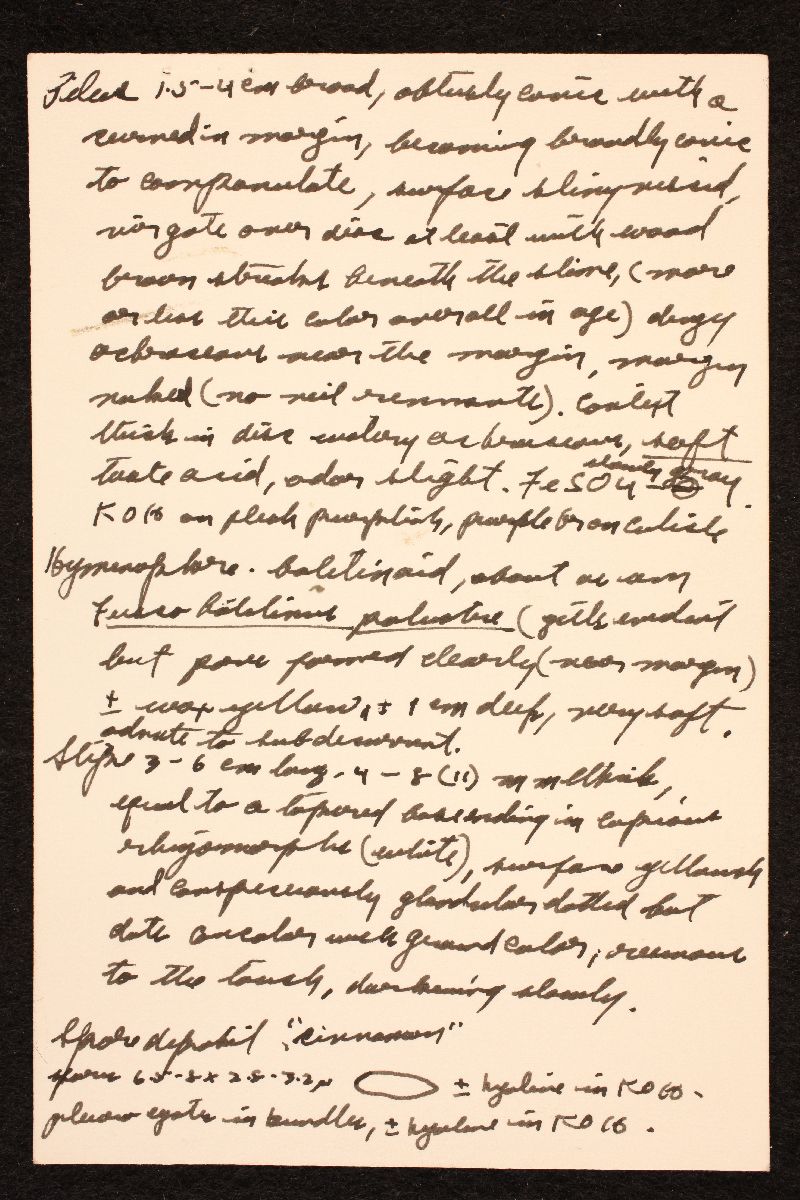 Pileus 1.5-4 cm broad, obtusely conic with a
curved in margin, becoming broadly conic
to companulate, surface slimy viscid,
virgate over disc at least with wood
brown streaks beneath the slime, (more
or less this color overall in age) dingy
ochraceous near the margin, margin
naked (no veil remnants). Context
thick in disc watery ochraceous, soft
taste acid, odor slight. FeSO4 slowly gray.
KOH on flesh purplish, purple br on cuticle
Hymenophore. boletinoid, about as in
Fuscoboletinus paluster (gills evident
but pore formed clearly (near margin)
± wax yellow, ± 1 cm deep, very soft.
adnate to subdecurrent.
Stipe 3-6 cm long - 4-8 (11) mm thick,
equal to a tapered base ending in copious
rhizomorphs (white), surface yellowish
and conspicuously glandular dotted but
dots concolor with ground color, 
to the touch, darkening slowly.
Spore deposit "cinnamon"
spores 6.5-8 x 2.8-3.2µ ± hyaline in KOH.
pleurocysts in bundles, ± hyaline in KOH.